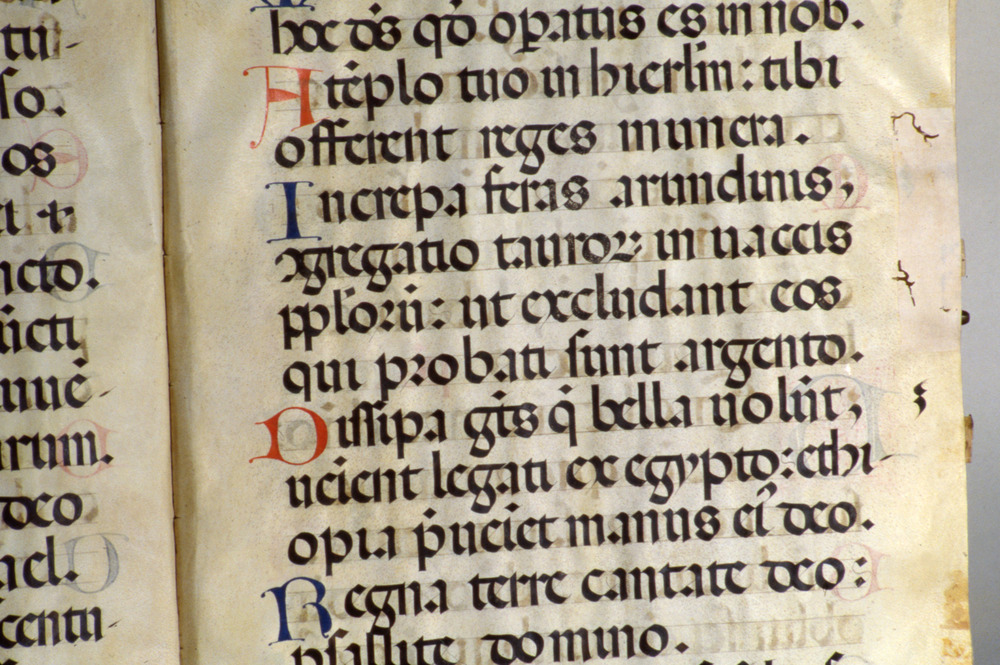 tu-
so.
os
et
ncto.
uicti
nuē-
arum.
deo
ael.
centu-
hoc ds̄ qd̄ opatus es in nob.
A tēplo tuo in hierlm̄: tibi
offerent reges munera.
Increpa feras arundinis,
ↄgregatio tauroꝝ in uaccis
pplorū: ut excludant eos
qui probati sunt argento.
Dissipa gēs q̄ bella uolūt,
uenient legati ex egypto: ethi-
opia p̄ueniet manus ei' deo.
Regna terre cantate deo:
psallite domino.